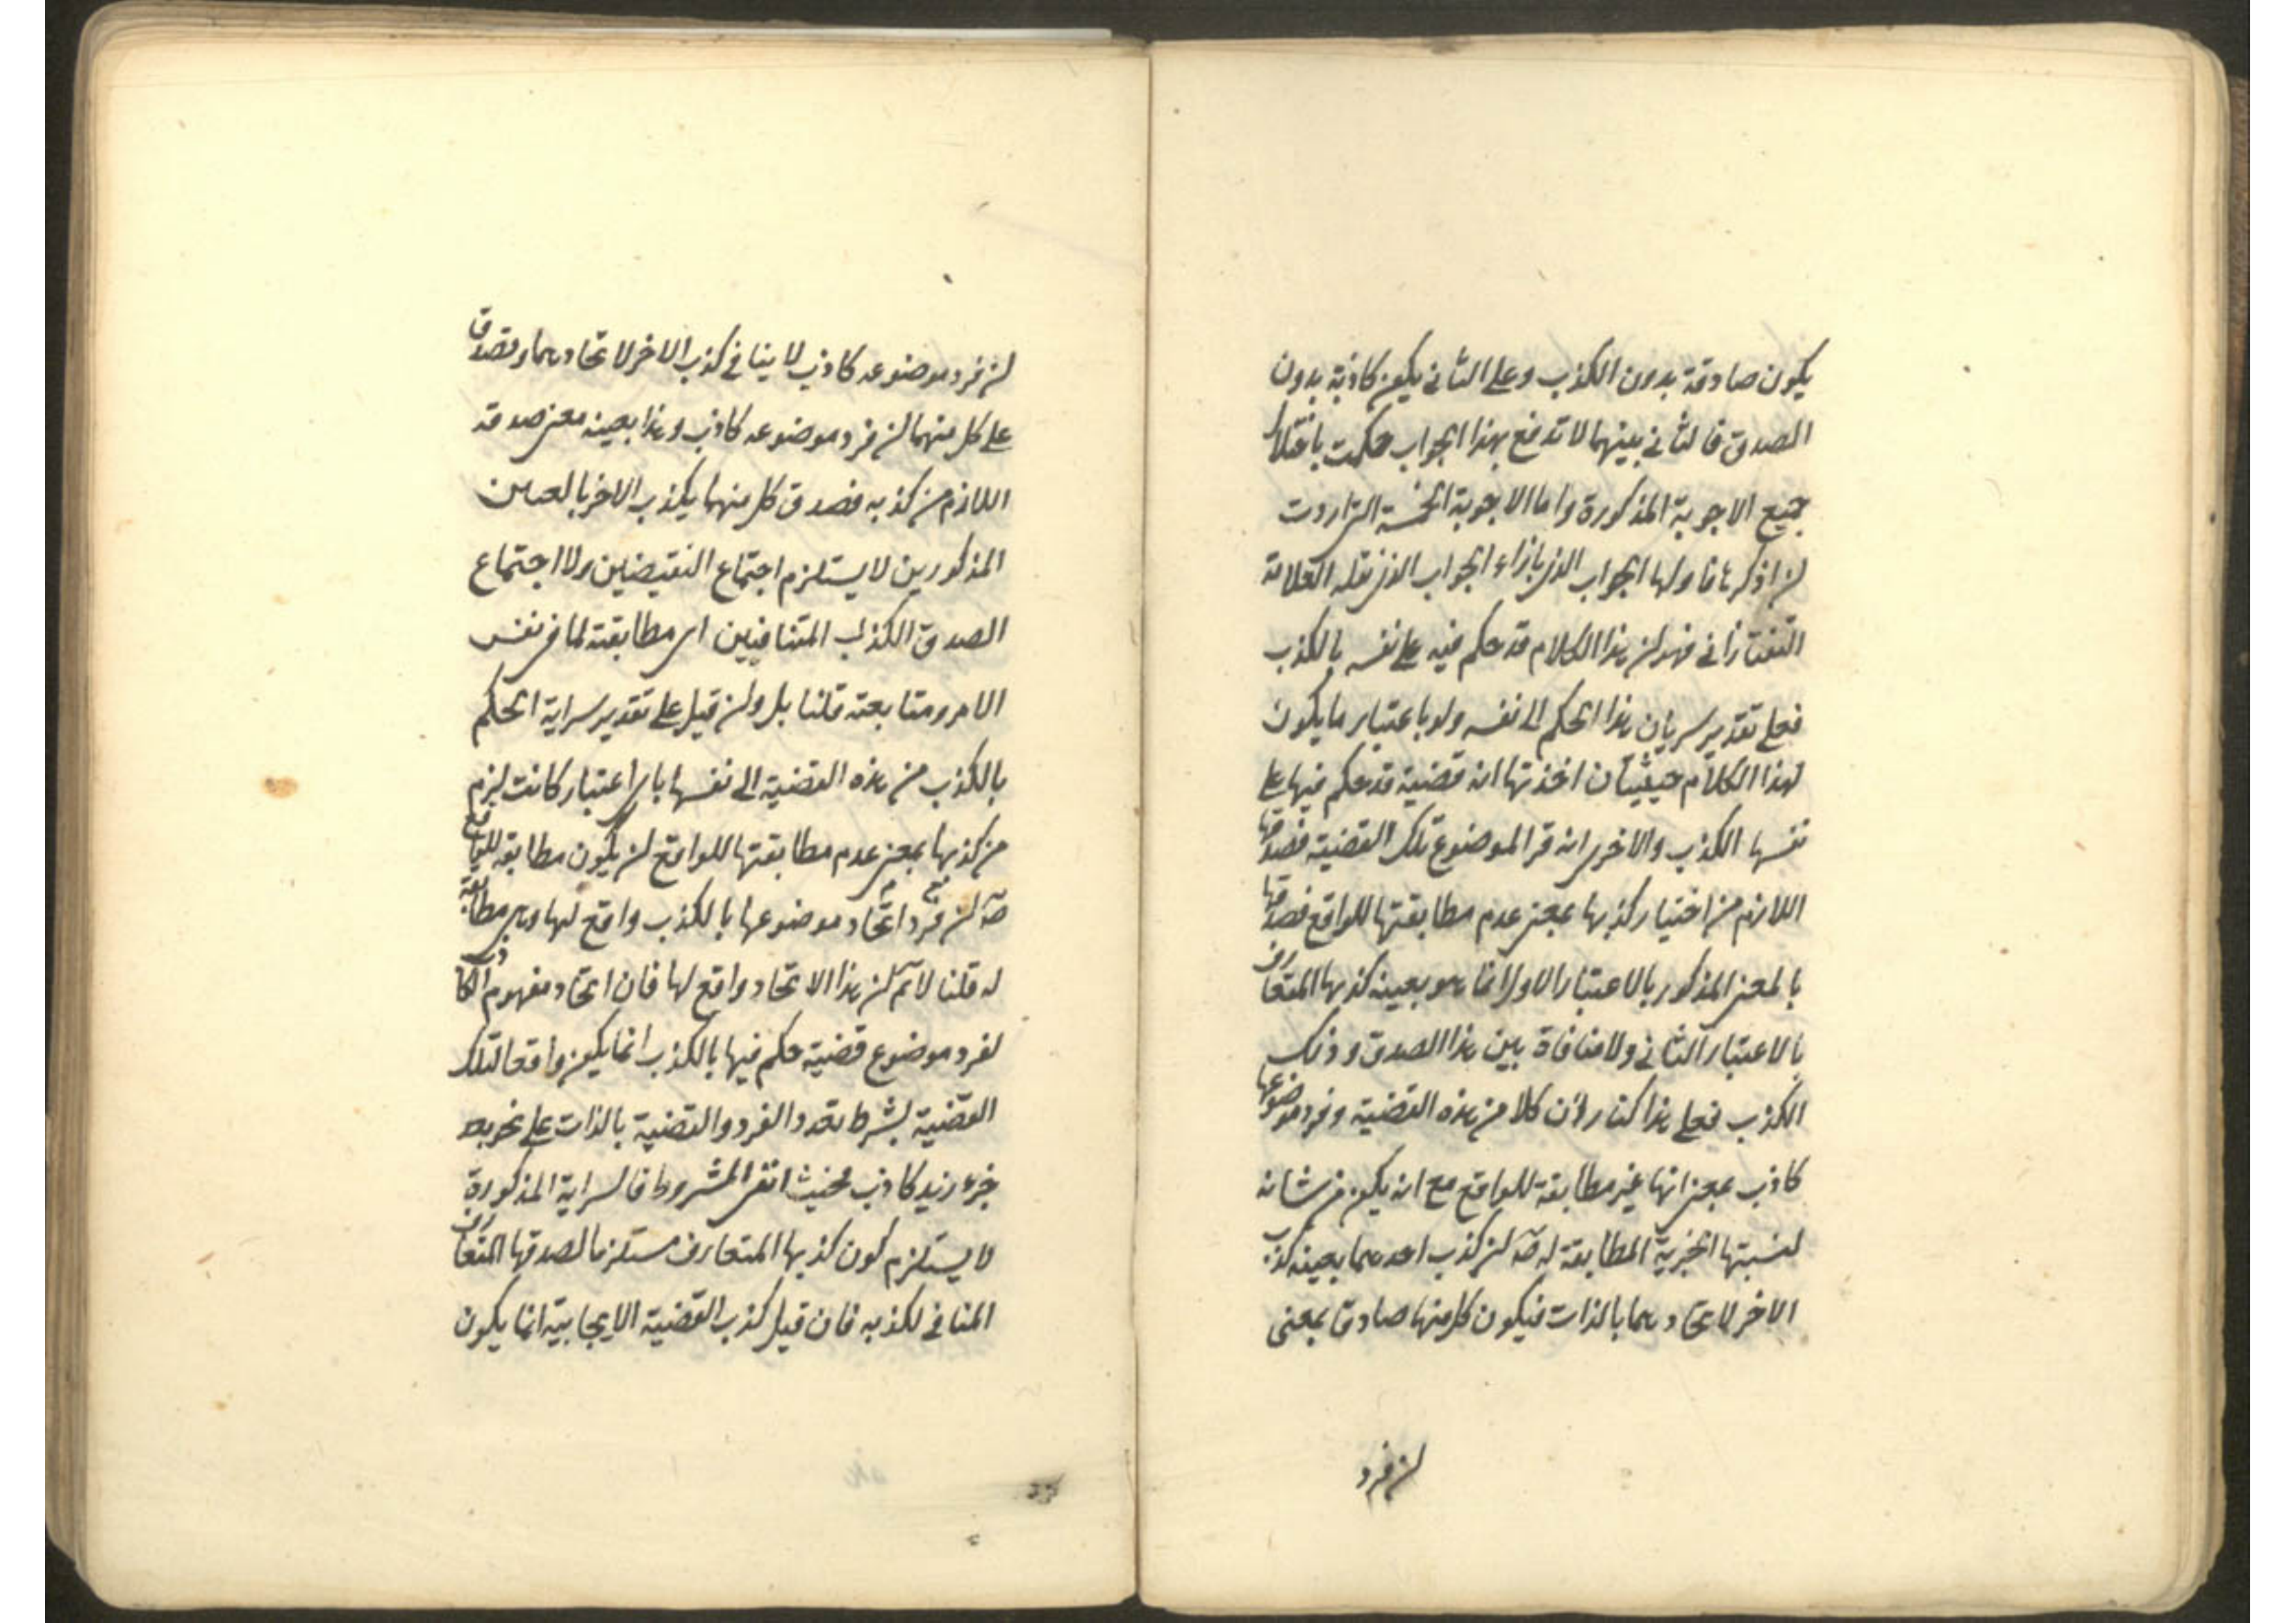 يكون صادقة بدون الكذب وعلى الثاني يكون كاذبة بدون
الصدق فالثاني بينهما لا تدفع بهذا الجواب حكمت باختلال
جميع الاجوبة المذكورة واما الاجوبة الخمسة التي اردت
لن اذكرها فاولها الجواب الذي بازاء الجواب الذي نقله العلامة
التفتازاني فهو لن هذا الكلام قد حكم فيه على نفسه بالكذب
فعلى تقدير سريان هذا الحكم الى نفسه ولو باعتبار ما يكون
لهذا الكلام حيثيتان احدتها انه قضية قد حكم فيها على
نفسها الكذب والاخرى انه فرد الموضوع تلك القضية فصدقها
اللازم من اختيار كذبها بمعنى عدم مطابقتها للواقع فصدقها
بالمعنى المذكور بالاعتبار الاول انما هو بعينه كذبها المتعارف
بالاعتبار الثاني ولا منافاة بين هذا الصدق وذلك
الكذب فعلى هذا كنا ر لان كلا من هذه القضية وفرد موضوعها
كاذب بمعنى انها غير مطابقة للواقع مع انه يكون من شانه
لنسبتها الخبرية المطابقة له صه لن كذب احدهما بعينه كذب
الاخر لاتحادهما بالذات فيكون كل منها صادقا بمعنى
لن فرد
لن فرد موضوعه كاذب لا ينافي كذب الاخر لاتحادهما وتصدق
على كل منهما لن فرد موضوعه كاذب وهذا بعينه معنى صدقه
اللازم من كذبه فصدق كل منهما يكذب الاخر بالمعنيين
المذكورين لا يستلزم اجتماع النقيضين ولا اجتماع
الصدق الكذب المتنافيين اي مطابقته لما في نفس
الامر ومتابعته قلنا بل ولن قيل على تقدير سراية الحكم
بالكذب من هذه القضية الى نفسها باي اعتبار كانت لزم
من كذبها بمعنى عدم مطابقتها للواقع لن يكون مطابقه للواقع
صه لن فرد اتحاد موضوعها بالكذب واقع لها وهي مطابقة
له قلنا لا نم لن هذا الاتحاد واقع لها فان اتحاد مفهوم الكاذب
لفرد موضوع قضية حكم فيها بالكذب انما يكون واقعا لتلك
القضية بشرط تعدد الفرد والقضية بالذات على نحو بعد
خبر زيد كاذب فحيث انتفى المشروط فالسراية المذكورة
لا يستلزم كون كذبها المتعارف مستلزما لصدقها المتعارف
المنافي لكذبه فان قيل كذب القضية الايجابية انما يكون